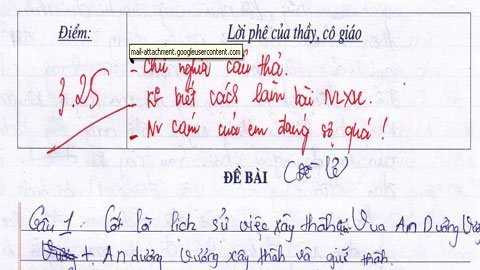 Điểm:
Lời phê của thầy, cô giáo
mail-attachment.googleusercontent.com
- Chữ nghĩa cẩu thả.
3.25
- Ko biết cách làm bài NLXH.
- Nv cảm của em đáng sợ quá!
ĐỀ BÀI
(Đề lẻ)
Câu 1: Cốt lõi lịch sử việc xây thành Vua An Dương
+ An dương vương xây thành và giữ thành.